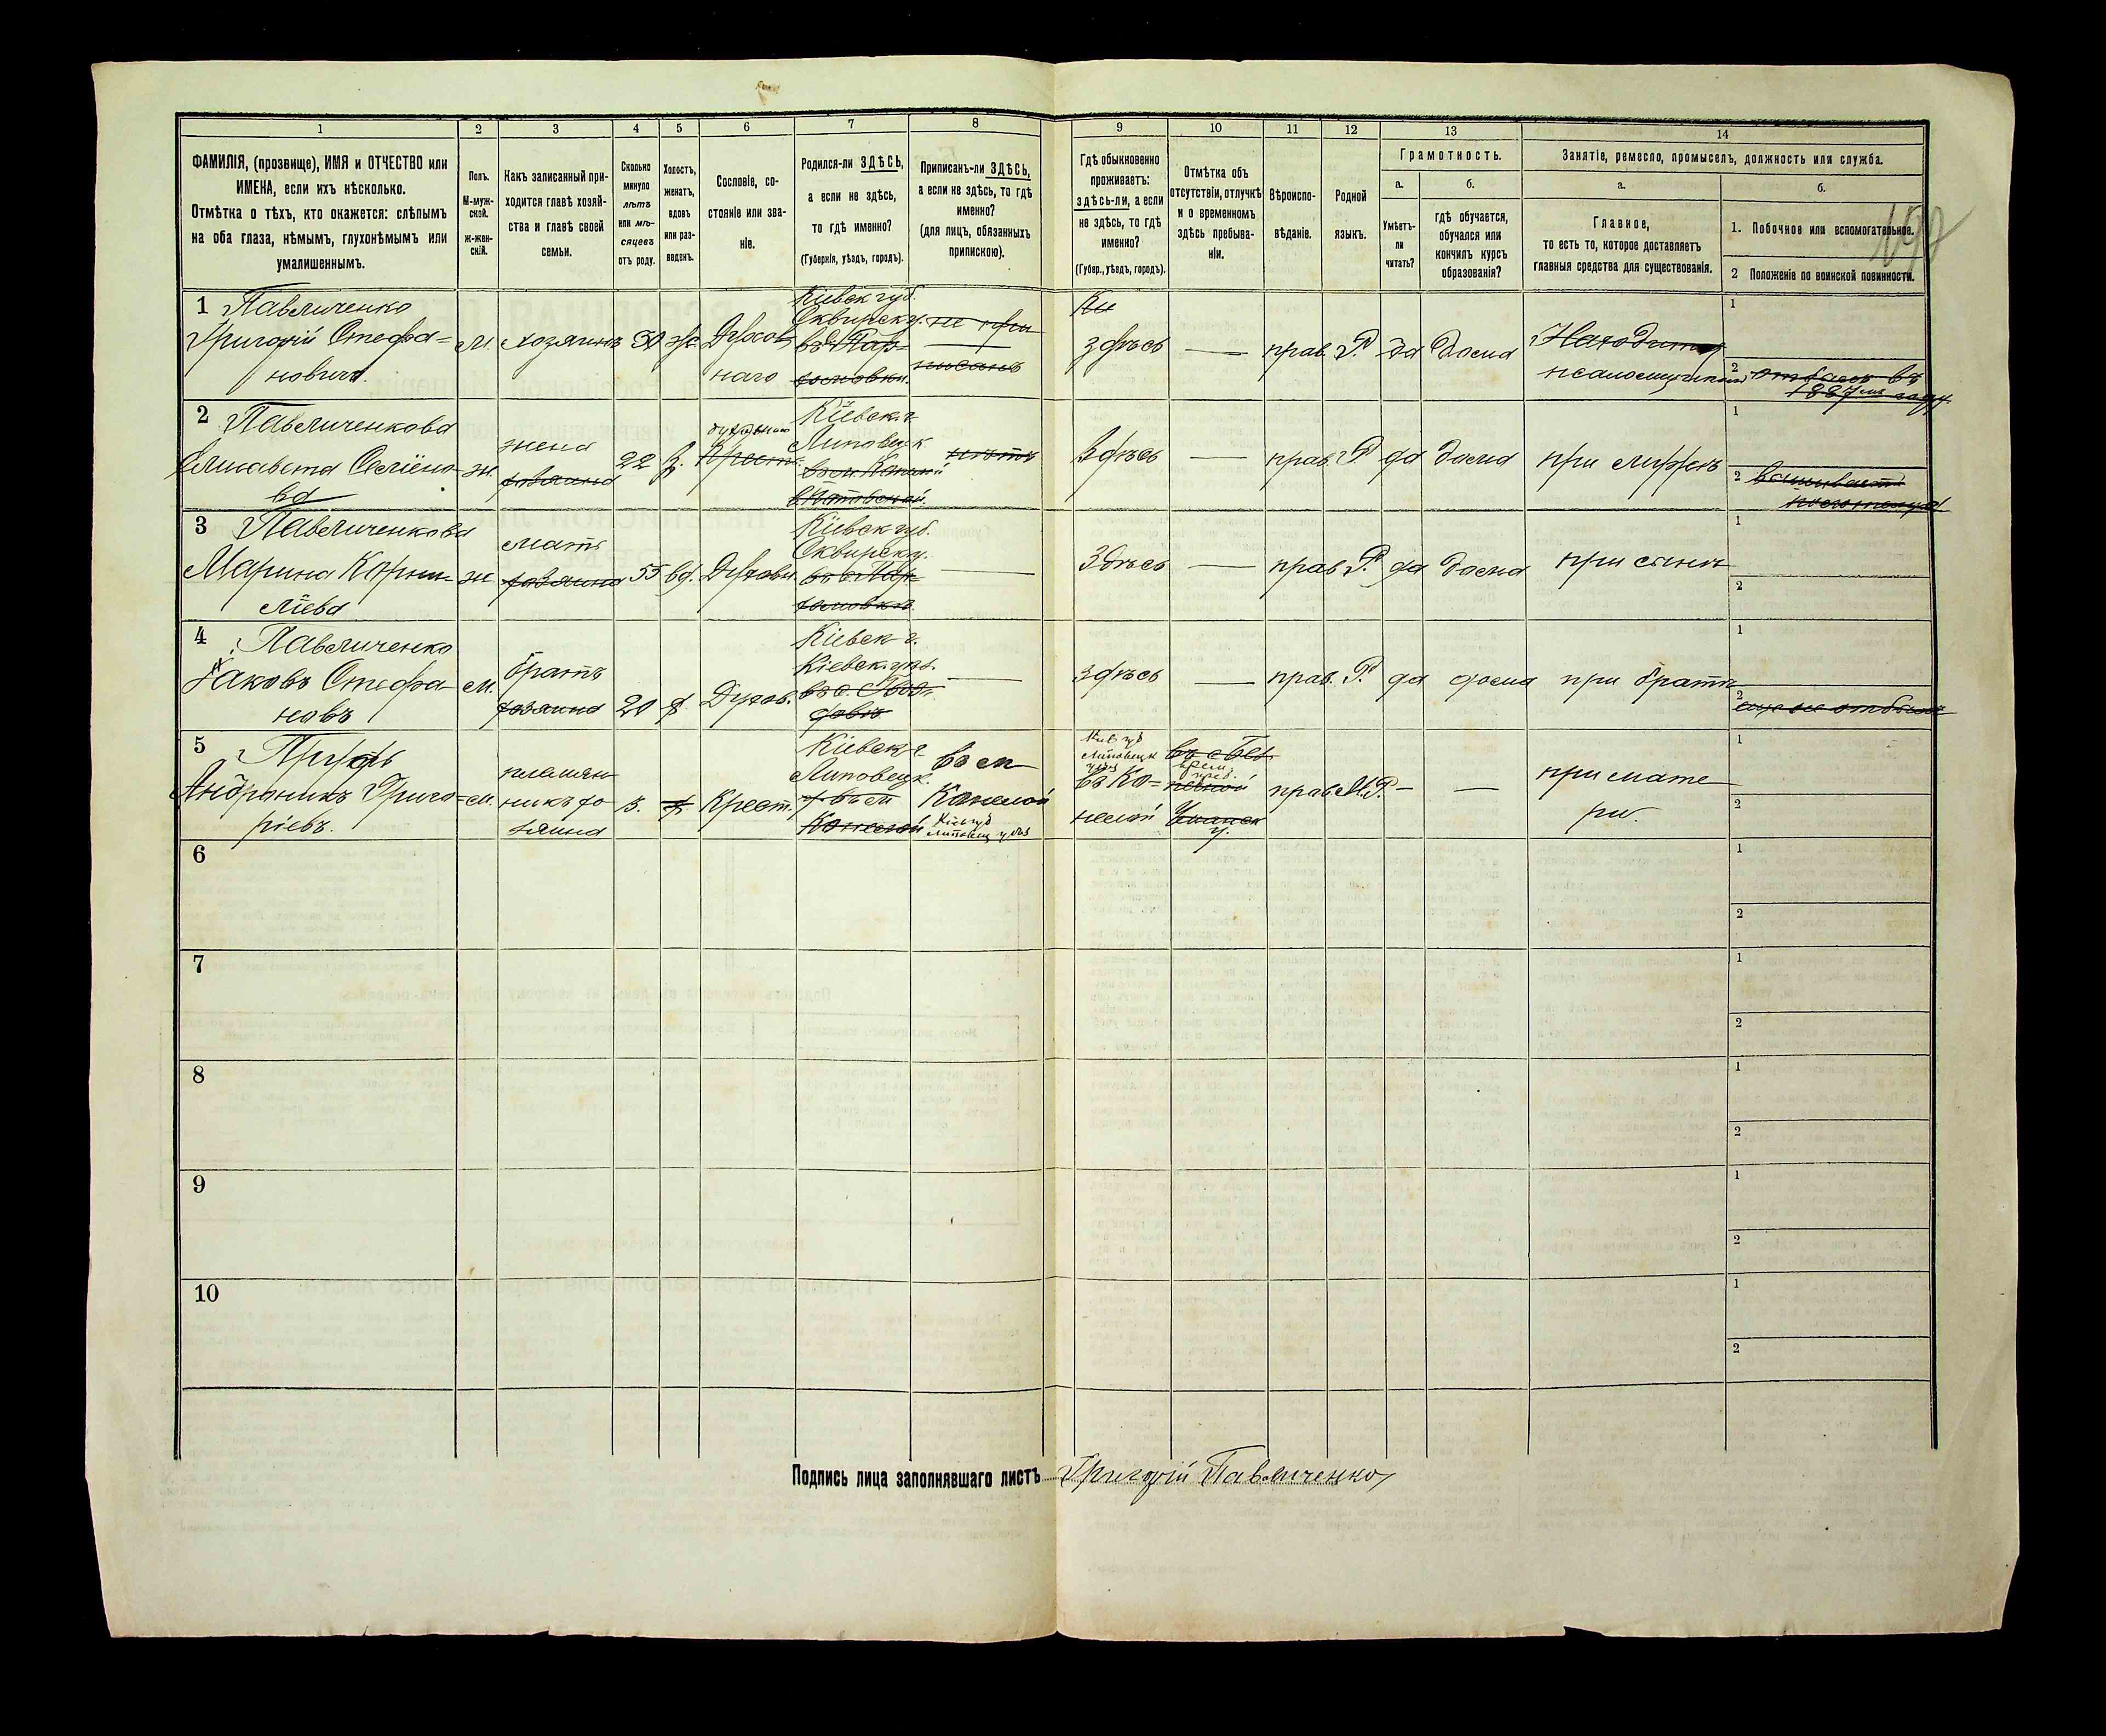 1 2 3 4 5 6 7 8 9 10 11 12 13 14
ФАМИЛІЯ, (прозвище), ИМЯ и ОТЧЕСТВО или
ИМЕНА, если ихъ нѣсколько.
Отмѣтка о тѣхъ, кто окажется: слѣпымъ
на оба глаза, нѣмымъ, глухонѣмымъ или
умалишеннымъ.
Полъ.
М-муж-
ской.
Ж-жен-
скій.
Какъ записанный при-
ходится главѣ хозяй-
ства и главѣ своей
семьи.
Сколько
минуло
лѣтъ
или мѣ-
сяцевъ
отъ роду.
Холостъ,
женатъ,
вдовъ
или раз-
веденъ.
Сословіе, со-
стояніе или зва-
ніе.
Родился-ли ЗДѢСЬ,
а если не здѣсь,
то гдѣ именно?
(Губернія, уѣздъ, городъ).
Приписанъ-ли ЗДѢСЬ,
а если не здѣсь, то гдѣ
именно?
(для лицъ, обязанныхъ
припискою).
Гдѣ обыкновенно
проживаетъ:
здѣсь-ли, а если
не здѣсь, то гдѣ
именно?
(Губер., уѣздъ, городъ).
Отмѣтка объ
отсутствіи, отлучкѣ
и о временномъ
здѣсь пребыва-
ніи.
Вѣроиспо-
вѣданіе.
Родной
языкъ.
Грамотность.
а.
Умѣетъ-
ли
читать?
б.
гдѣ обучается,
обучался или
кончилъ курсъ
образованія?
Занятіе, ремесло, промыселъ, должность или служба.
а.
Главное,
то есть то, которое доставляетъ
главныя средства для существованія.
б.
1. Побочное или вспомогательное.
2 Положеніе по воинской повинности.
1 Павличенко
Григорій Стефа=
новичъ
м.
хозяинъ
30
ж.
Духов
наго
Кіевск губ.
Сквирск у.
въ с Пар-
не при
писанъ
Ки
здѣсь
—
прав.
Р
да
дома
псаломщикомъ
1
2 отбылъ въ
1887мъ году
2 Павличенкова
Елисавета Семіоно-
ва
ж.
жена
хозяина
22
з.
Крест.
Кіевск г
Липовецк
нѣтъ
Здѣсь
—
прав.
Р
да
дома
при мужѣ
1
2
3 Павличенкова
Марина Корни-
ліева
ж.
мать
хозяина
55
вд.
Духовн.
Кіевск губ.
Сквирск у.
въ с Пар-
—
Здѣсь
—
прав.
Р.
да
дома
при сынѣ
1
2
4 Павличенко
Яковъ Стефа-
новъ
м.
братъ
хозяина
20
х.
Духов.
Кіевск г.
Кіевск. уѣз.
—
здѣсь
—
прав.
Р.
да
дома
при братѣ
1
2
еще не отбылъ
5
Андроникъ Григо=
ріевъ.
м.
племян-
никъ хо-
зяина
3.
х.
Крест.
Кіевск г
Липовецк.
у. въ м
Конелой
въ м
Конелой
Кіев губ
Липовец уѣз
Кіев губ
Липовецк
уѣз
въ Ко=
нелой
врем.
преб.
Уманск
у.
прав
М.Р.
—
—
при мате
ри.
1
2
6
1
2
7
1
2
8
1
2
9
1
2
10
1
2
Подпись лица заполнявшаго листъ Григорій Павличенко